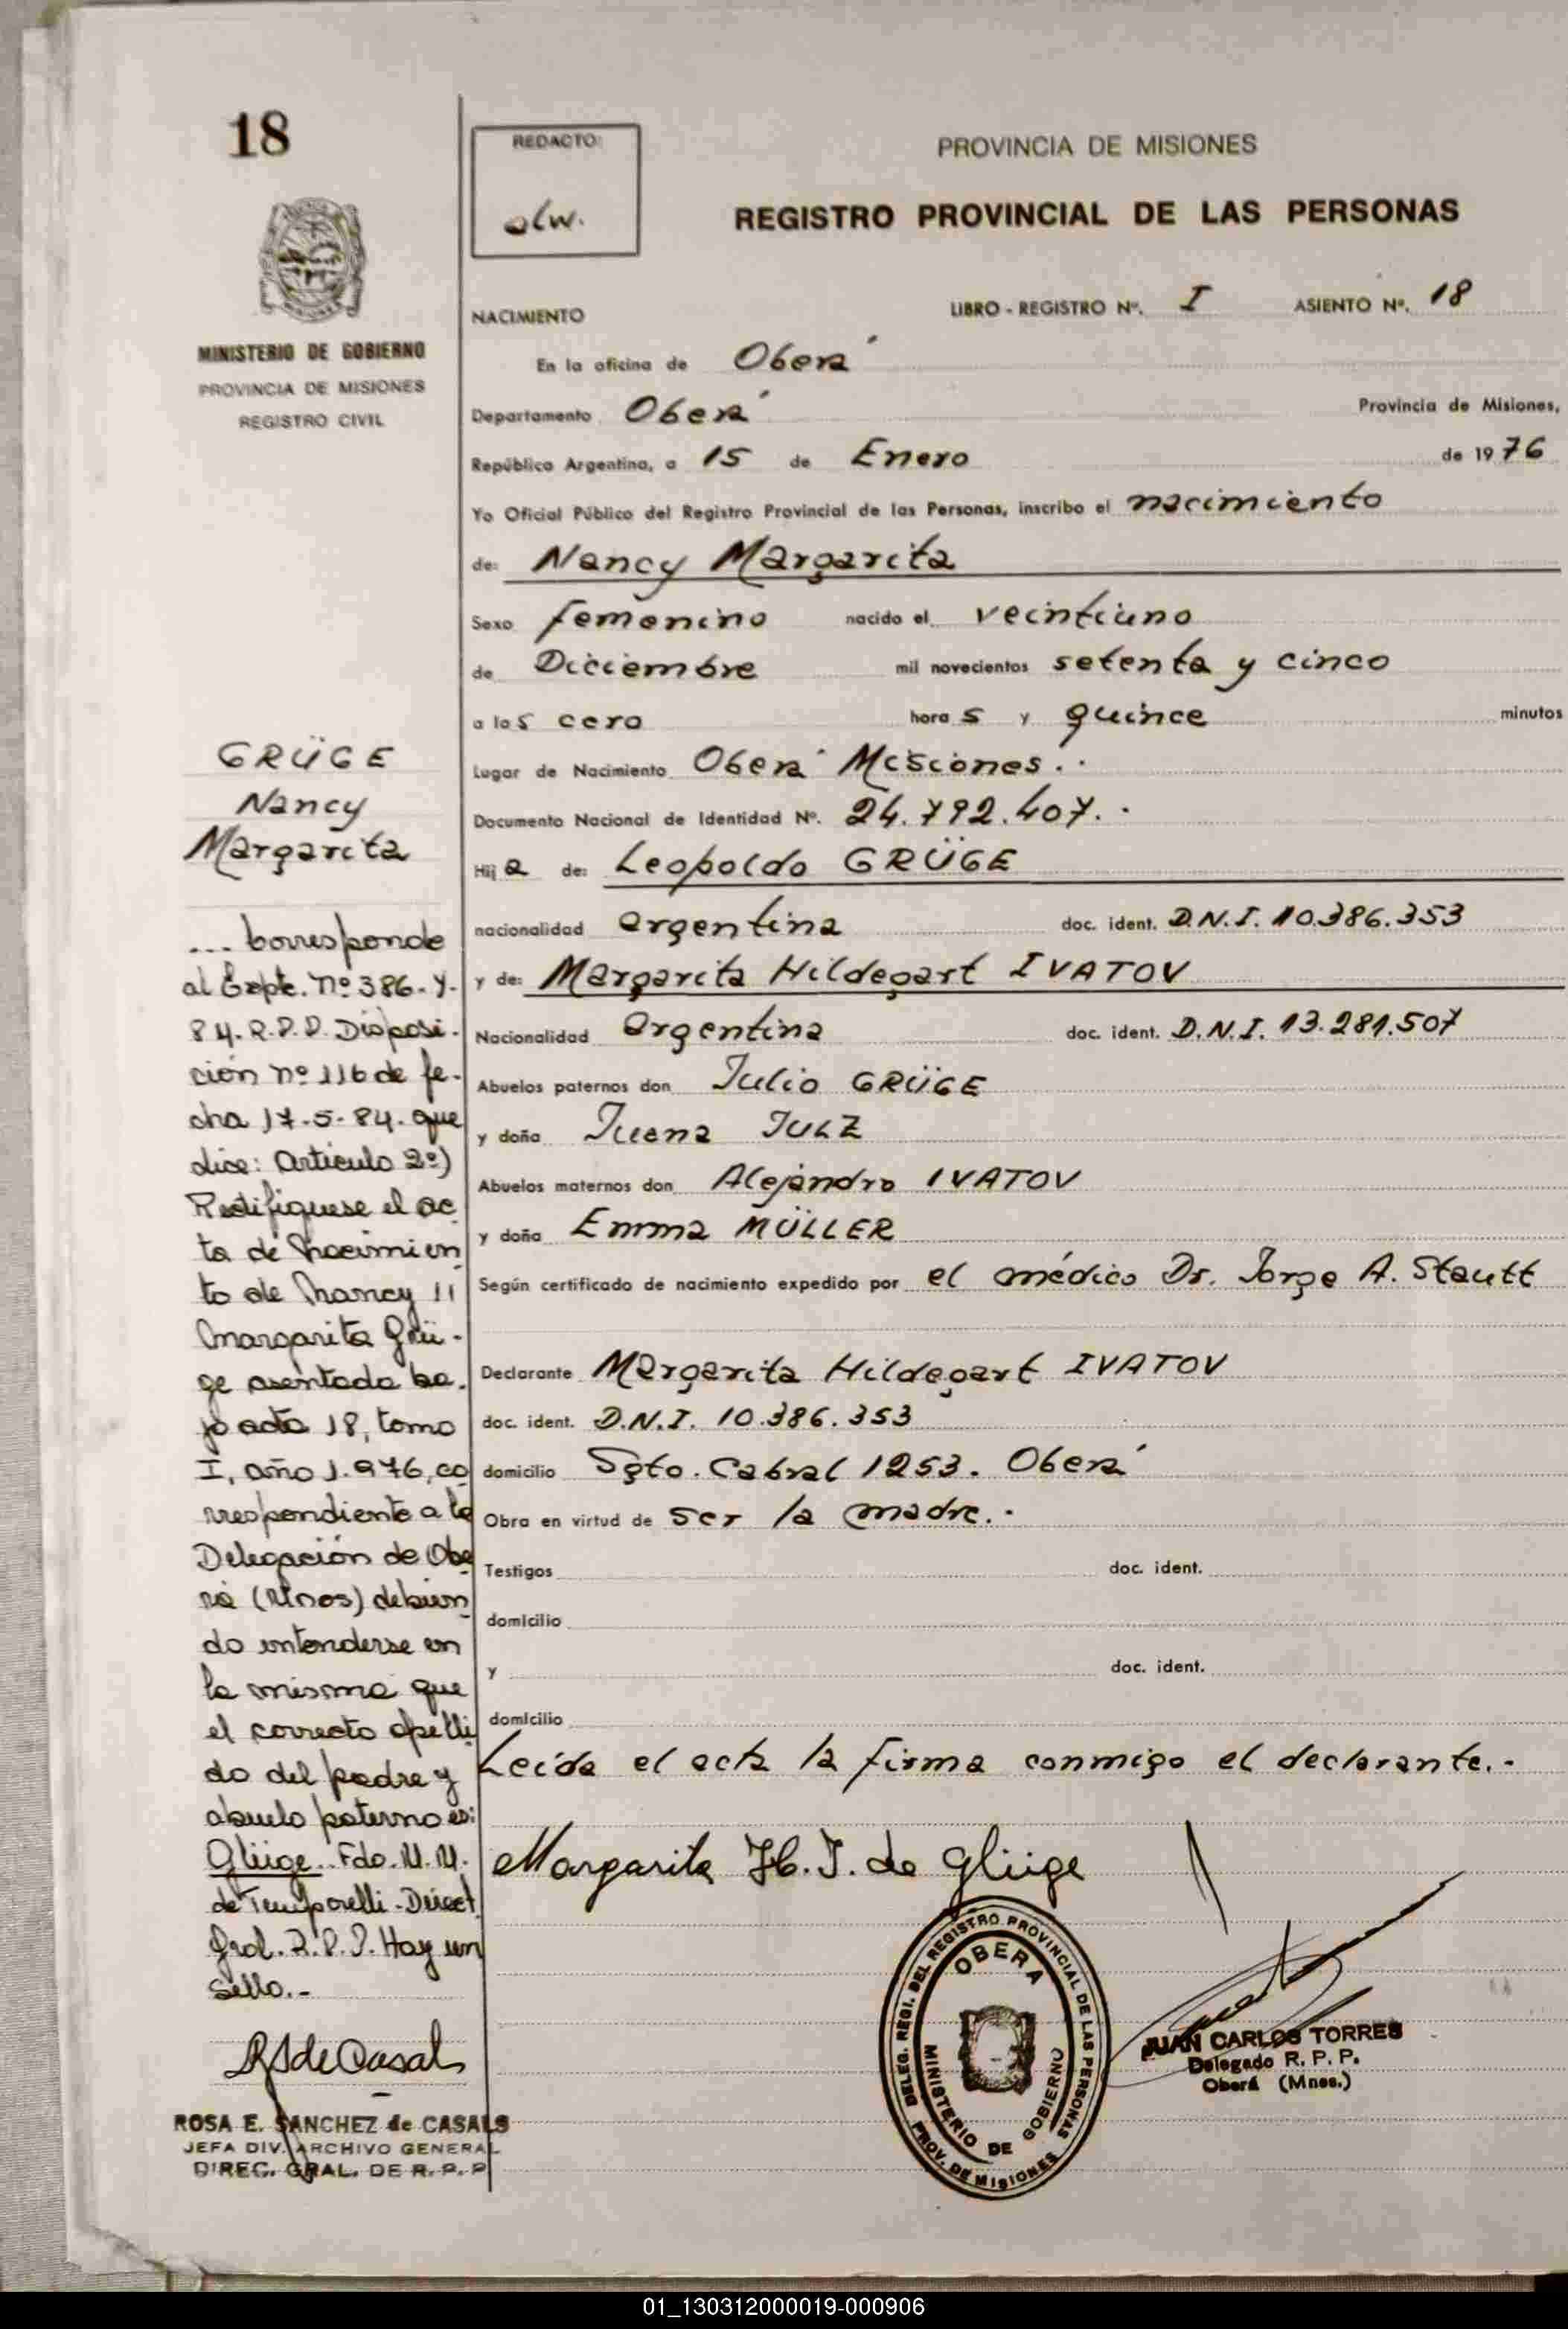 18
MINISTERIO DE GOBIERNO
PROVINCIA DE MISIONES
REGISTRO CIVIL
REDACTO:
olw.
PROVINCIA DE MISIONES
REGISTRO PROVINCIAL DE LAS PERSONAS
NACIMIENTO LIBRO - REGISTRO Nº. I ASIENTO Nº. 18
En la oficina de Oberá
Departamento Oberá Provincia de Misiones,
República Argentina, a 15 de Enero de 1976
Yo Oficial Público del Registro Provincial de las Personas, inscribo el nacimiento
de: Nancy Margarita
Sexo femenino nacido el veintiuno
de Diciembre mil novecientos setenta y cinco
a las cero horas y quince minutos
Lugar de Nacimiento Oberá Misiones..
Documento Nacional de Identidad Nº. 24.792.407.-
Hija de: Leopoldo GRÜGE
nacionalidad argentina doc. ident. D.N.I. 10.386.353
y de: Margarita Hildegart IVATOV
Nacionalidad argentina doc. ident. D.N.I. 13.281.507
Abuelos paternos don Julio GRÜGE
y doña Juana JULZ
Abuelos maternos don Alejandro IVATOV
y doña Emma MÜLLER
Según certificado de nacimiento expedido por el médico Dr. Jorge A. Stautt
Declarante Margarita Hildegart IVATOV
doc. ident. D.N.I. 10.386.353
domicilio Sgto. Cabral 1253. Oberá
Obra en virtud de ser la madre.-
Testigos doc. ident.
domicilio
y doc. ident.
domicilio
Leída el acta la firma conmigo el declarante.-
Margarita H. I. de Glüge
GRÜGE
Nancy
Margarita
... Corresponde
al Expte. nº 386-Y-
84. R.P.P. Disposi-
ción nº 116 de fe-
cha 17-5-84. que
dice: Artículo 2º)
Rectifiquese el ac
ta de Nacimien
to de Nancy 11
Margarita Grü-
ge asentada ba-
jo acta 18, tomo
I, año 1.976, co
rrespondiente a la
Delegación de Obe
rá (Mnes) debien
do entenderse en
la misma que
el correcto apelli
do del padre y
abuelo paterno es:
Glüge. Fdo. M. M.
de Temporelli - Direct
Gral. R.P.P. Hay un
sello.-
RSdeCasals
ROSA E. SANCHEZ de CASALS
JEFA DIV. ARCHIVO GENERAL
DIREC. GRAL. DE R. P. P.
DELEG. REGI. DEL REGISTRO PROVINCIAL DE LAS PERSONAS
OBERA
MINISTERIO DE GOBIERNO
PROV. DE MISIONES
JUAN CARLOS TORRES
Delegado R. P. P.
Oberá (Mnes.)
01_130312000019-000906